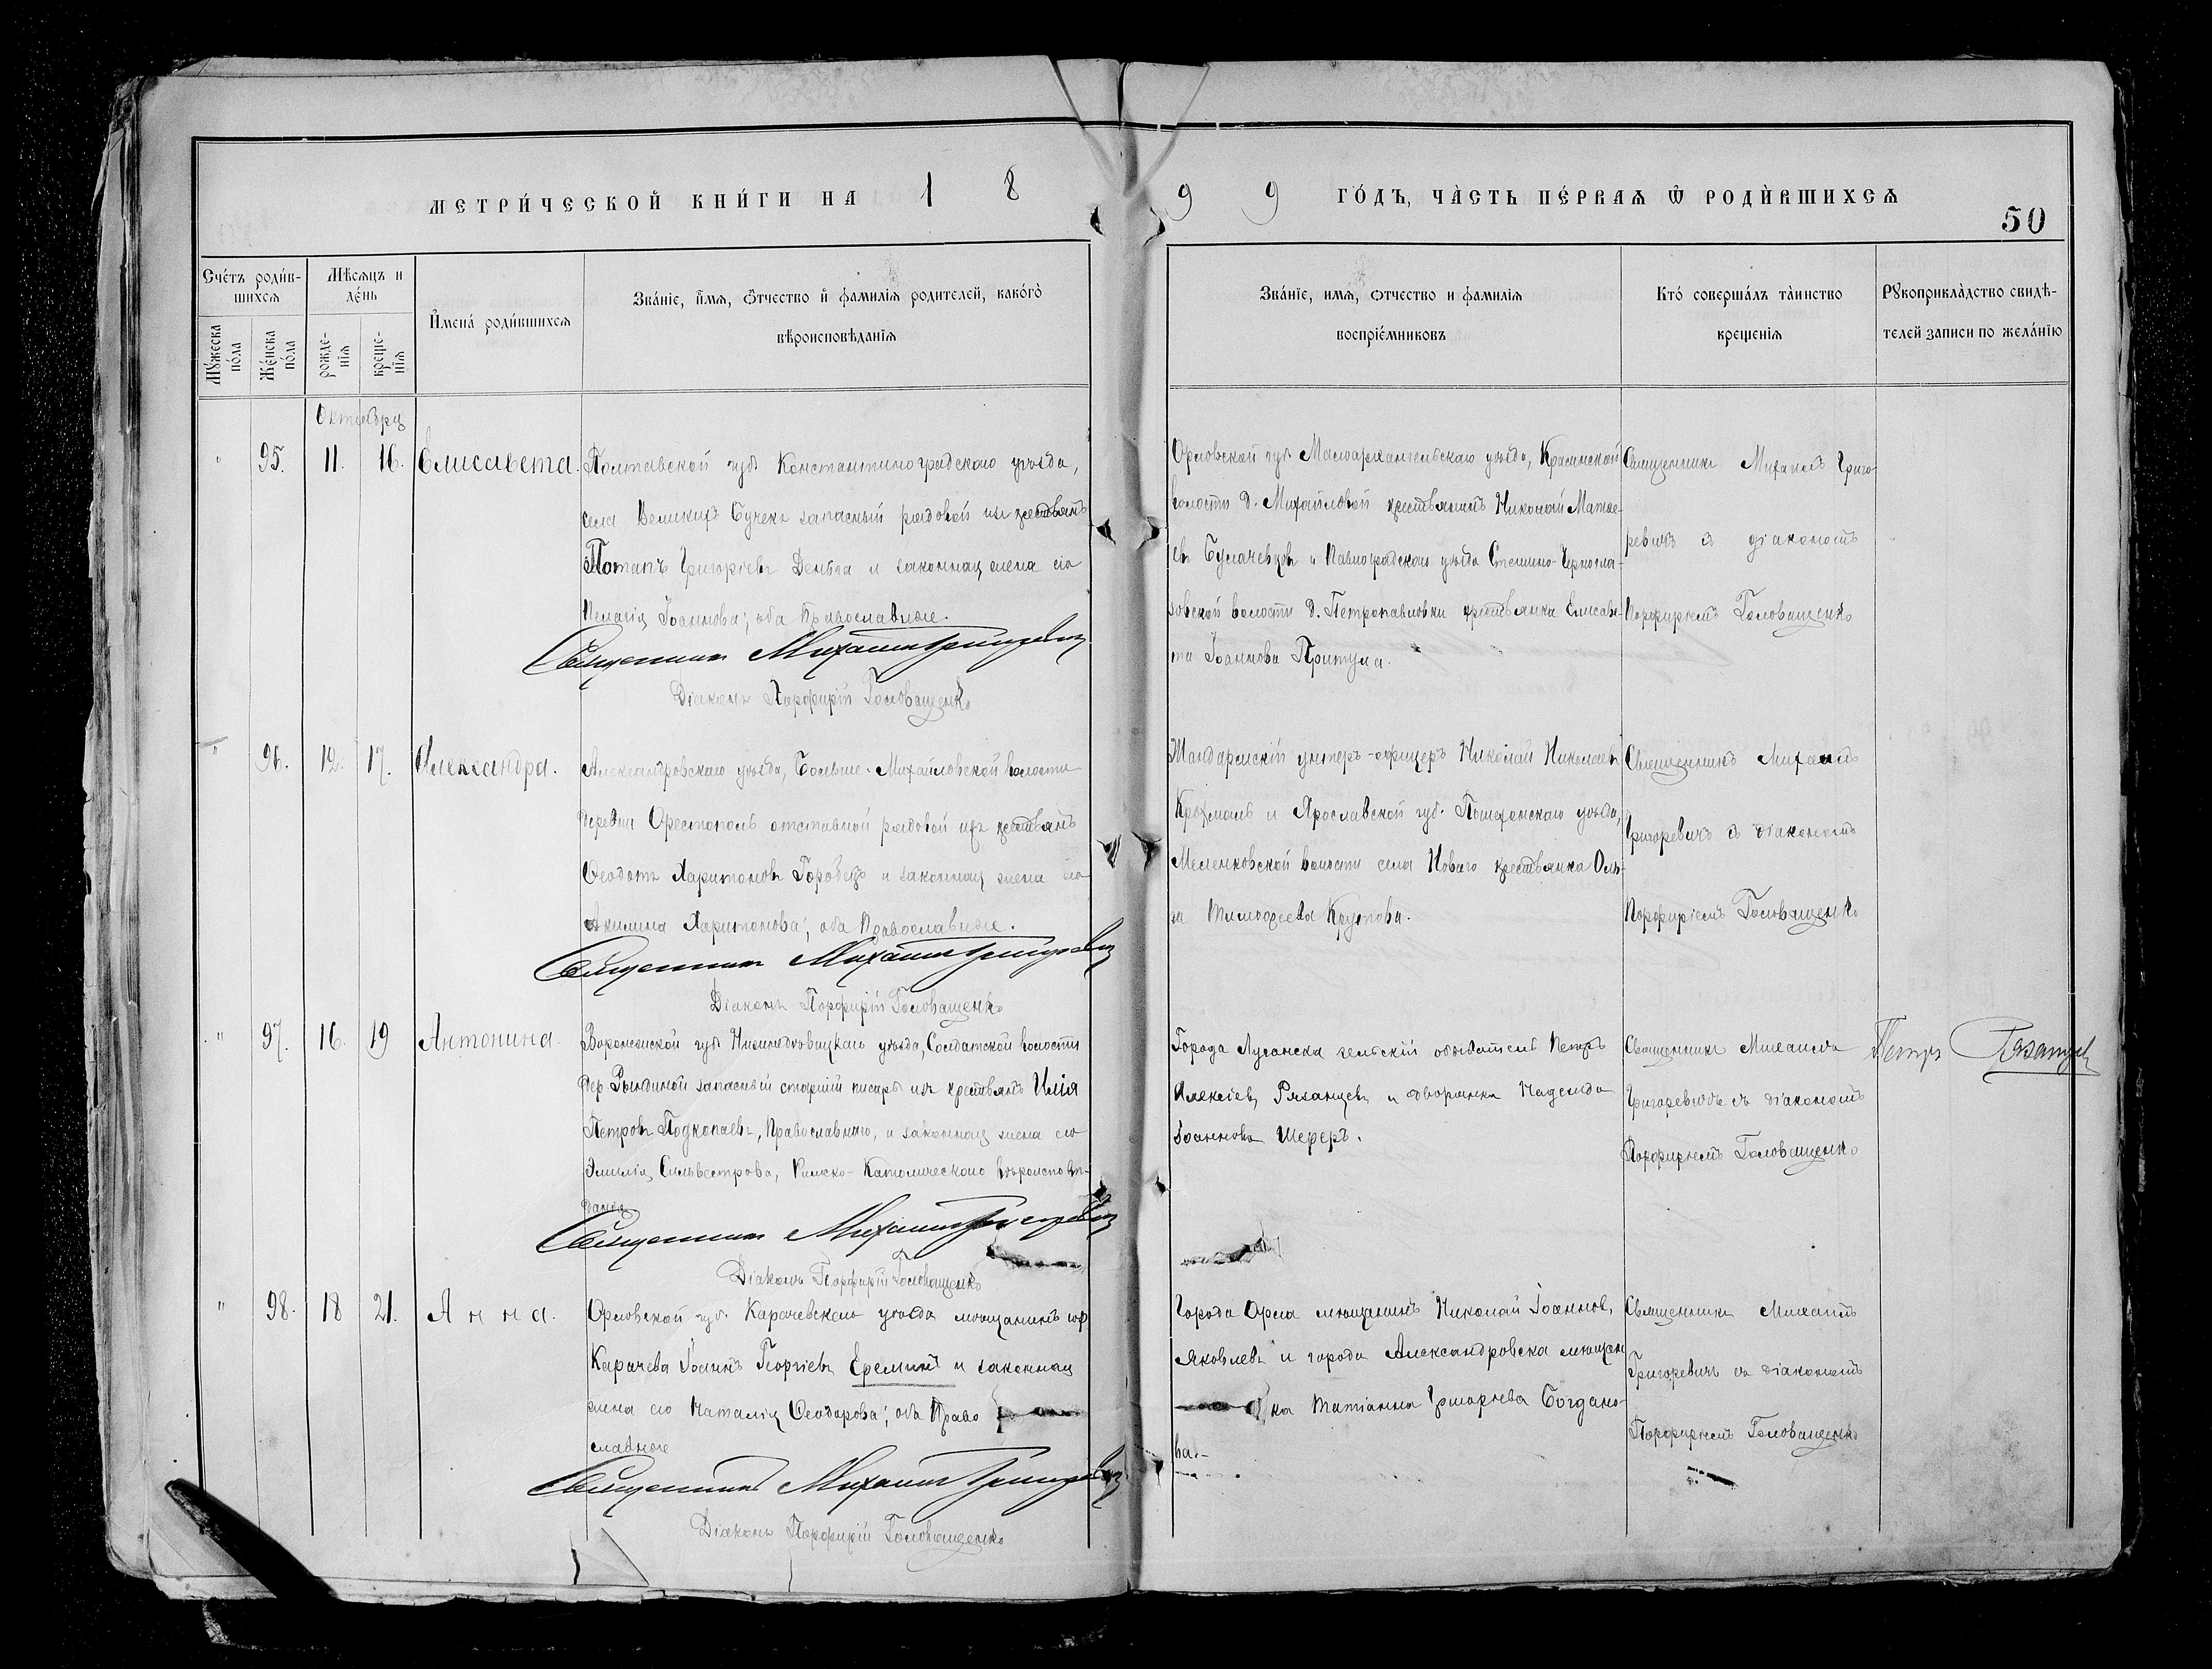 МЕТРИ́ЧЕСКОЙ КНИ́ГИ НА 1 8 9 9 ГО́ДЪ, ЧА̀СТЬ ПЕ́РВАѦ Ѿ РОДЍВШИХСѦ
50
Сче́тъ роди́в-
шихсѧ
Мѣсѧцъ и
де́нь
Мꙋжеска по́ла
Же́нска по́ла
рожде-
нїѧ
креще-
нїѧ
И҆мена́ роди́вшихсѧ
Зва́нїе, и҆́мѧ, ѻ҆́тчество и҆ фамилїѧ родителей, како́гѡ̀
вѣроисповѣданїѧ
Зва́нїе, имѧ, ѻтчество и фамилїѧ
воспрїе́мниковъ
Кто́ соверша́лъ та̀инство
крещенїѧ
Рꙋкоприкла̀дство свидѣ-
телей записи по жела́нїю
Октября
" 95. 11. 16. Елисавета.
Полтавской губ Константиноградскаго уѣзда,
села Великихъ Бучекъ запасный рядовой изъ крестьянъ
Потапъ Григоріевъ Деньга и законная жена его
Пелагія Іоаннова; оба Православные.
Священникъ Михаилъ Григоревичъ
Діаконъ Порфирій Головащенко
Орловской губ Малоархангельскаго уѣзда,
волости д. Михайловой крестьянинъ Николай Матве-
евъ и Павлоградскаго уѣзда
волости д. Петропавловки крестьянка Елисаве-
та Іоаннова Притула.
Священникъ Михаилъ Григо-
ревичъ съ діакономъ
Порфиріемъ Головащенко
" 96. 12. 17. Александра.
Александровскаго уѣзда, Больше-Михайловской волости
деревни Орестополь отставной рядовой изъ крестьянъ
Ѳеодотъ Харитоновъ Горовецъ и законная жена его
Акилина Харитонова; оба Православные.
Священникъ Михаилъ Григоревичъ
Діаконъ Порфирій Головащенко
Жандармскій унтеръ-офицеръ Николай Николаевъ
Крохмаль и Ярославской губ. Пошехонскаго уѣзда,
волости села Новаго крестьянка Оль-
га Тимоѳеева Крупова.
Священникъ Михаилъ
Григоревичъ съ діакономъ
Порфиріемъ Головащенко
" 97. 16. 19 Антонина.
Воронежской губ Нижнедѣвицкаго уѣзда, Солдатской волости
дер запасный старшій писарь изъ крестьянъ Илія
Петровъ Подкопаевъ, Православнаго, и законная жена его
Эмилія Сильвестрова, Римско-Католическаго вѣроисповѣ-
данія
Священникъ Михаилъ Григоревичъ
Діаконъ Порфирій Головащенко
Города Луганска сельскій обыватель Петръ
Алексіевъ Рязанцевъ и дворянка Надежда
Іоаннова Шеферъ.
Священникъ Михаилъ
Григоревичъ съ діакономъ
Порфиріемъ Головащенко
Петръ Рязанцевъ
" 98. 18 21. Анна.
Орловской губ. Карачевскаго уѣзда мѣщанинъ гор
Карачева Іоаннъ Георгіевъ Ереминъ и законная
жена его Наталія Ѳеодорова; оба Право
славные
Священникъ Михаилъ Григоревичъ
Діаконъ Порфирій Головащенко
Города Орла мѣщанинъ Николай Іоанновъ
Яковлевъ и города Александровска мѣщан
ка Татіанна Григорьева Богдано-
ва.
Священникъ Михаилъ
Григоревичъ съ діакономъ
Порфиріемъ Головащенко